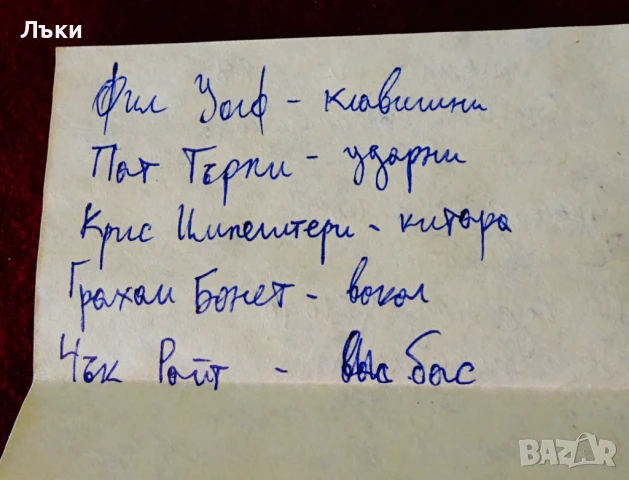 Лъки
Фил Уолф - клавишни
Пат Търпи - ударни
Крис Импелитери - китара
Грахам Бонет - вокал
Чък Райт - бас
BAZAR